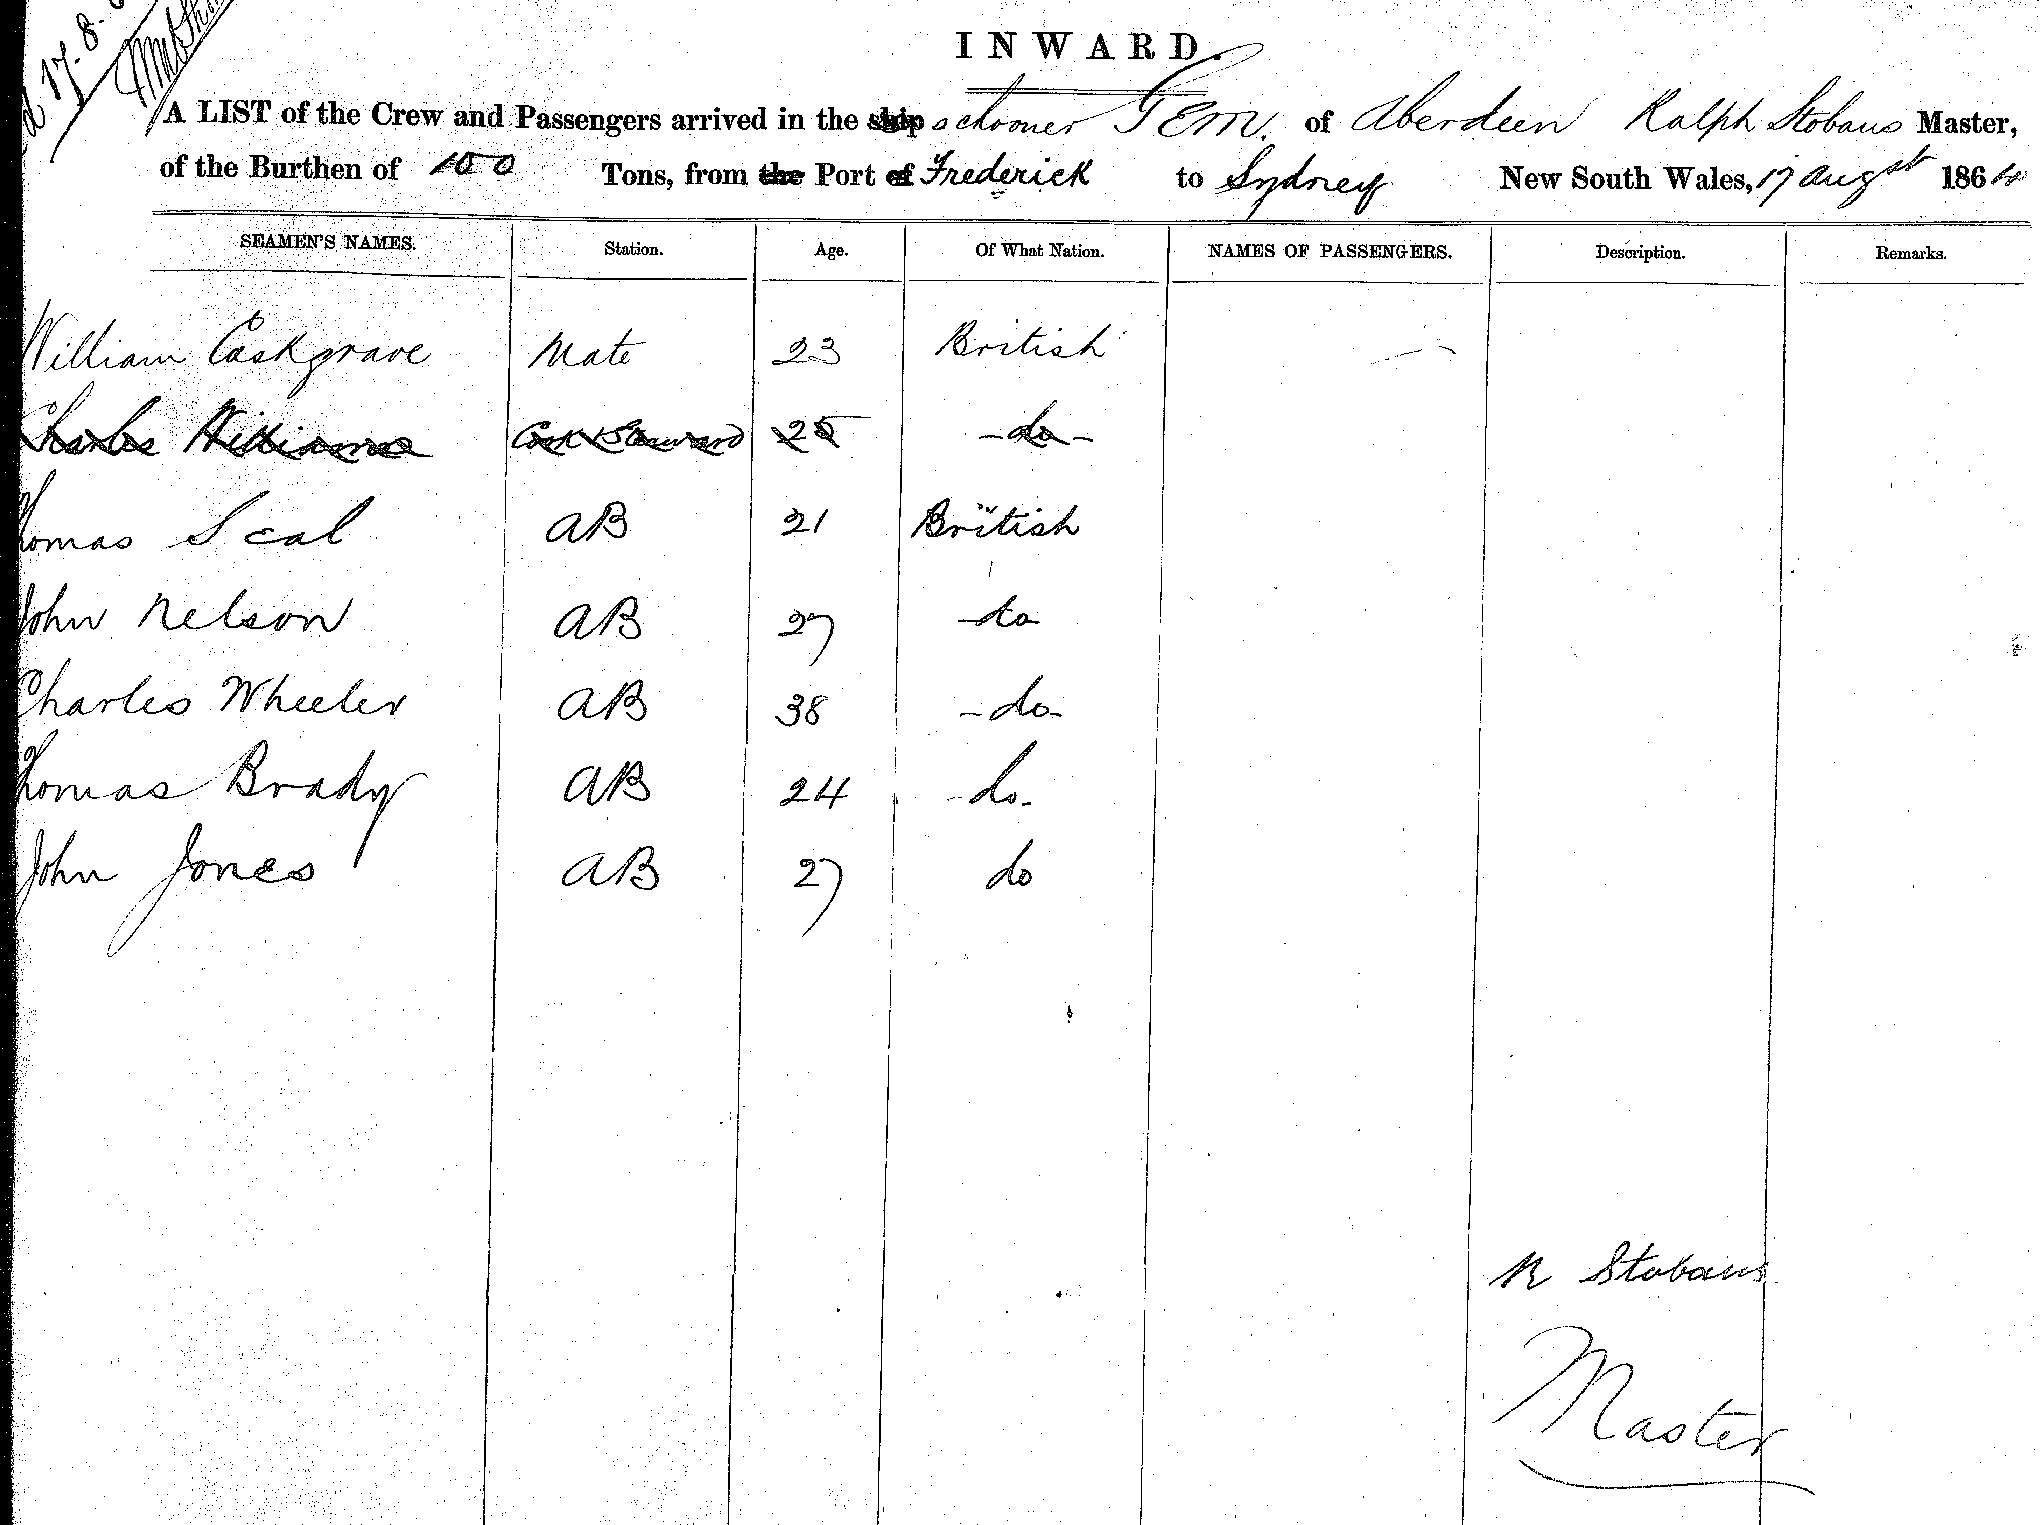 17-8-
INWARD.
A LIST of the Crew and Passengers arrived in the ship schooner Gem. of Aberdeen Ralph Stobaus Master,
of the Burthen of 100 Tons, from the Port of Frederick to Sydney New South Wales, 17 Augst 186
SEAMEN'S NAMES. Station. Age. Of What Nation. NAMES OF PASSENGERS. Description. Remarks.
William Caskgrave Mate 23 British
Charles Williams Cook & Steward 25 -do-
Thomas Seal AB 21 British
John Nelson AB 27 -do
Charles Wheeler AB 38 -do-
Thomas Brady AB 24 -do-
John Jones AB 27 do
R Stobaus
Master